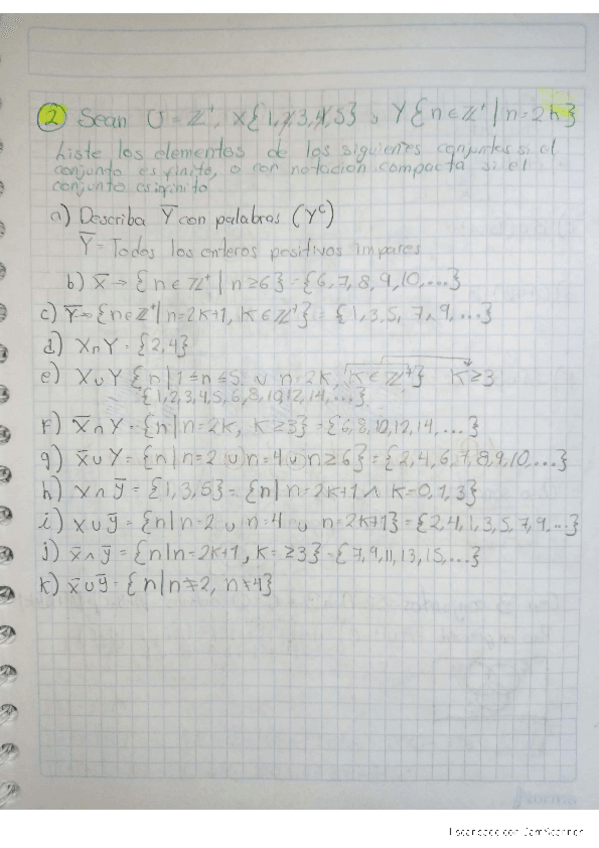 2 Sean U = Z⁺, X{1,2,3,4,5} y Y{n∈Z⁺ | n=2k}
Liste los elementos de los siguientes conjuntos si el
conjunto es finito, o con notación compacta si el
conjunto es infinito
a) Describa Y̅ con palabras (Yᶜ)
Y̅ = Todos los enteros positivos impares
b) X̅ → {n∈Z⁺ | n≥6} = {6,7,8,9,10,...}
c) Y̅ → {n∈Z⁺ | n=2k+1, k∈Z⁺} = {1,3,5,7,9,...}
d) X∩Y = {2,4}
e) X∪Y {n | 1≤n≤5 ∪ n=2k, k∈Z⁺} k≥3
{1,2,3,4,5,6,8,10,12,14,...}
f) X̅∩Y = {n|n=2k, k≥3} = {6,8,10,12,14,...}
g) X̅∪Y = {n|n=2 ∪ n=4 ∪ n≥6} = {2,4,6,7,8,9,10,...}
h) X∩y̅ = {1,3,5} = {n|n=2k+1 ∧ k=0,1,3}
i) X∪y̅ = {n|n=2 ∪ n=4 ∪ n=2k+1} = {2,4,1,3,5,7,9,...}
j) X̅∩y̅ = {n|n=2k+1, k=≥3} = {7,9,11,13,15,...}
k) X̅∪y̅ = {n|n≠2, n≠4}
Escaneado con CamScanner